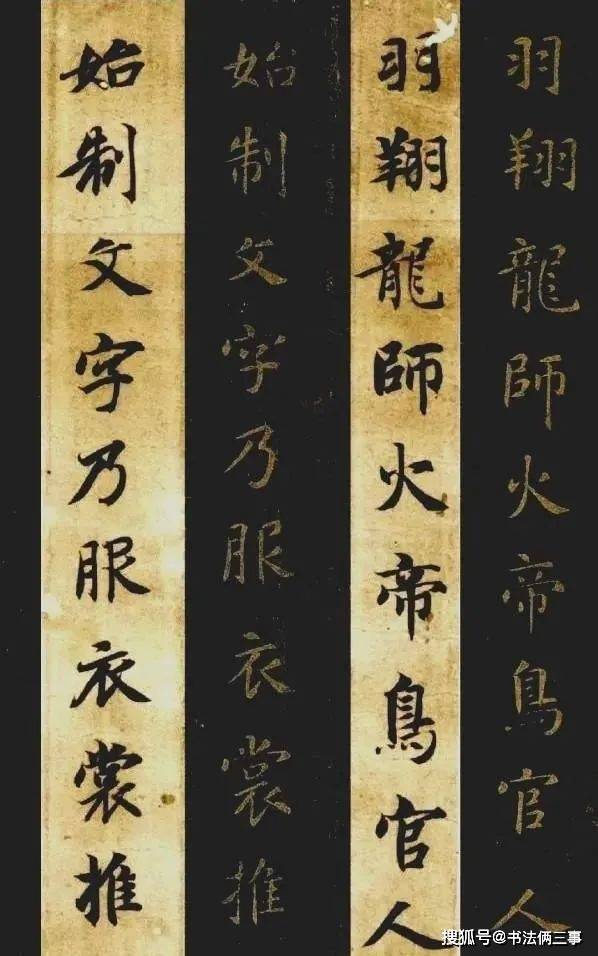 羽翔龍師火帝鳥官人
羽翔龍師火帝鳥官人
始制文字乃服衣裳推
始制文字乃服衣裳推
搜狐号@书法俩三事